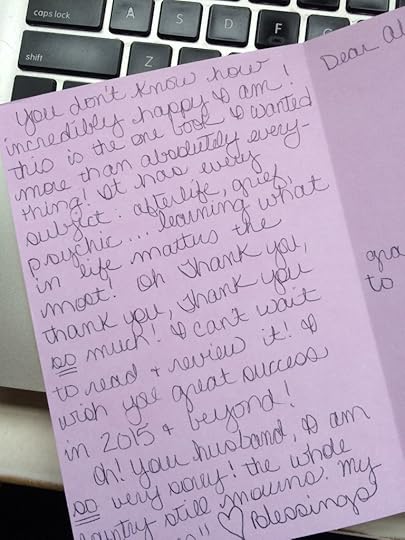 caps lock
A
S
D
F
G
shift
Z
X
C
You don't know how
incredibly happy I am!
this is the one book I wanted
more than absolutely every-
thing! It has every
subject: afterlife, grief,
psychic... learning what
in life matters the
most! Oh Thank you,
thank you, thank you
so much! I can't wait
to read & review it! I
wish you great success
in 2015 & beyond!
Oh! Your husband, I am
so very sorry! the whole
country still mourns. My
♡ Blessings
Dear
to